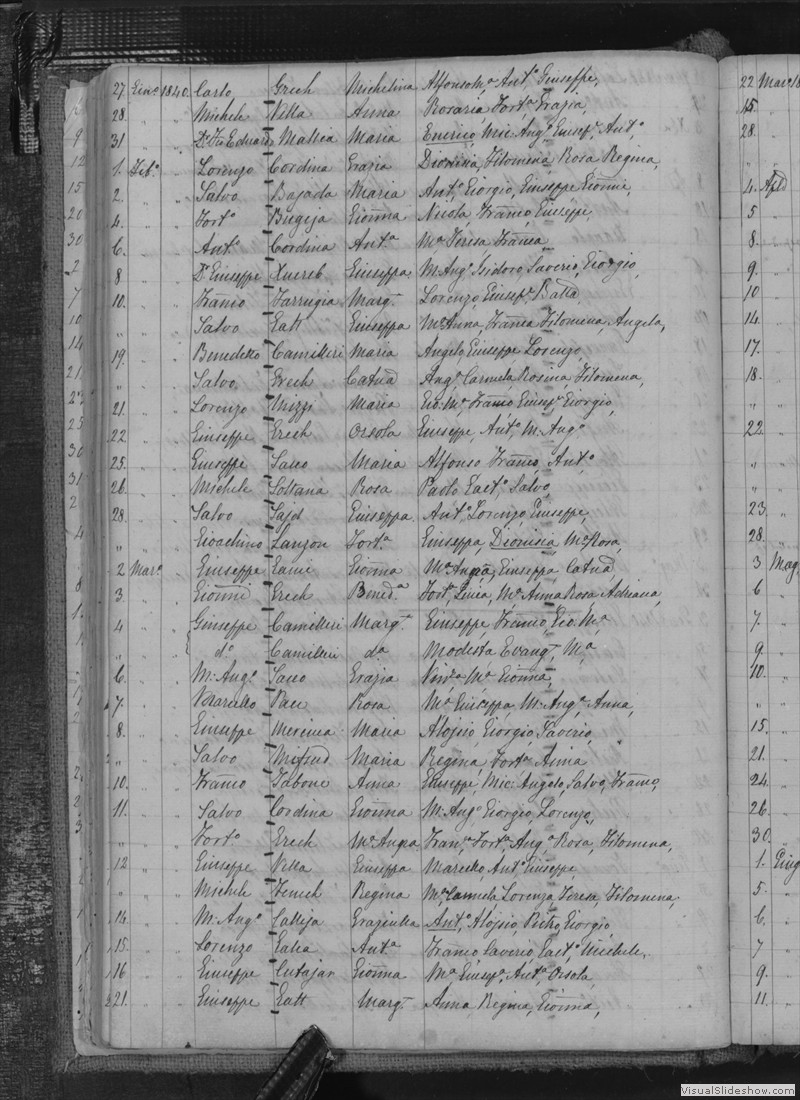 27 Ein.o 1840. Carlo Grech Michelina Alfonso M.a Ant.o Giuseppe,
28. " " Michele Vella Anna Rosaria, Fort.a Grazia,
31 " " Dr. Eduard Mallia Maria Enrico, Mic: Ang.o Giusep.e Ant.o
1. Feb.o " Lorenzo Cordina Grazia Dionisia, Filomena, Rosa Regina,
2. " " Salvo Bajada Maria Ant.o Giorgio, Giuseppe Gionni,
4. " " Fort.o Bugeja Gionna Nicola, Franco, Giuseppe,
6. " " Ant.o Cordina Ant.a M.a Teresa Franca
8 " " Dr. Giuseppe Xuereb Giuseppa M. Ang.o Isidoro Saverio, Giorgio,
10. " " Franco Farrugia Marg.t Lorenzo, Giusep.e Batta,
" " Salvo Galt Giuseppa M.a Anna, Franca Filomena Angela,
19. " " Benedetto Camilleri Maria Angelo, Giuseppe Lorenzo,
" " " Salvo Grech Catnd Ang.a Carmela Rosina, Filomena,
21. " " Lorenzo Mizzi Maria Gio. M.a Franco Giusep.e Giorgio,
22. " " Giuseppe Grech Orsola Giuseppe, Ant.o M. Ang.o
25. " " Giuseppe Sacco Maria Alfonso Franco, Ant.o
26. " " Michele Soltana Rosa Paolo Gaet.o Salvo,
28. " " Salvo Sajd Giuseppa Ant.o Lorenzo, Giuseppe,
" " " Gioachino Lanzon Fort.a Giuseppa, Dionisia M.a Rosa,
2 Mar.o " Giuseppe Gauci Gionna M.a Angla, Giuseppa, Catnd
3. " " Gionni Grech Bened.a Fort.a Lucia, M.a Anna Rosa Adriana,
4 " " Giuseppe Camilleri Marg.t Giuseppe, Franco, Gio. M.a
" " d.o Camilleri d.a Modesta Evang.t M.a
6. " " M: Ang.o Sacco Grazia M.a Gionna,
7. " " Marcello Pace Rosa M.a Giuseppa, M. Ang.a Anna,
8. " " Giuseppe Mercieca Maria Alojsio, Giorgio, Saverio,
" " Salvo Mifsud Maria Regina, Fort.a Anna
10. " " Franco Tabone Anna Giuseppe, Mic: Angelo, Salvo, Franco,
11. " " Salvo Cordina Gionna M: Ang.o Giorgio, Lorenzo,
" " " Fort.o Grech M.a Angla Fran.a Fort.a Ang.a Rosa, Filomena,
12 " " Giuseppe Vella Giuseppa Marcello, Ant.o Giuseppe,
" " " Michele Zerich Regina M.a Carmela Lorenza, Teresa, Filomena,
14. " " M: Ang.o Calleja Graziulla Ant.o Alojsio, Pietro, Giorgio,
15. " " Lorenzo Galea Ant.a Franco Saverio, Gaet.o Michele,
16 " " Giuseppe Cutajar Gionna M.a Giusep.a Ant.a Orsola,
21. " " Giuseppe Galt Marg.t Anna, Regina, Gionna,
22 Mar.o 18
15.
28.
4. Aple
5
8.
9.
10
14.
17.
18.
" "
22.
" "
" "
23.
28.
3 Mag
6
7.
9
10.
" "
15.
21.
24
26.
30.
1. Giug
5.
6.
7
9.
11.
VisualSlideshow.com